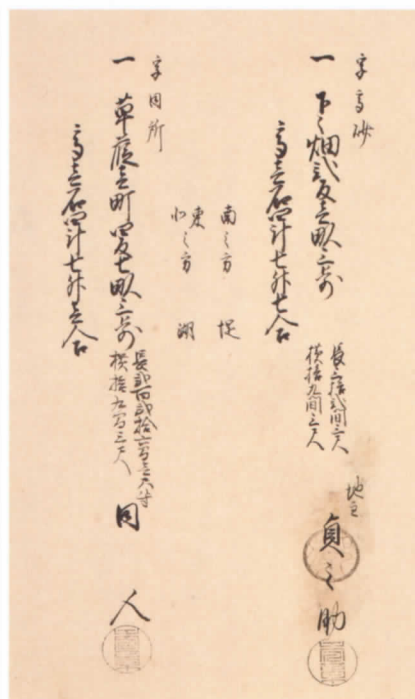 字高砂
一 下々畑弐反壱畝三歩
長三拾弐間三尺
横拾九間三尺
地主
貞之助
高壱石四斗七升七合
南之方 堤
東
北之方 湖
字同所
一 草葭壱町四反七畝三歩
長弐百弐拾六間壱尺寸
横拾九間三尺
同人
高壱石四斗七升壱合